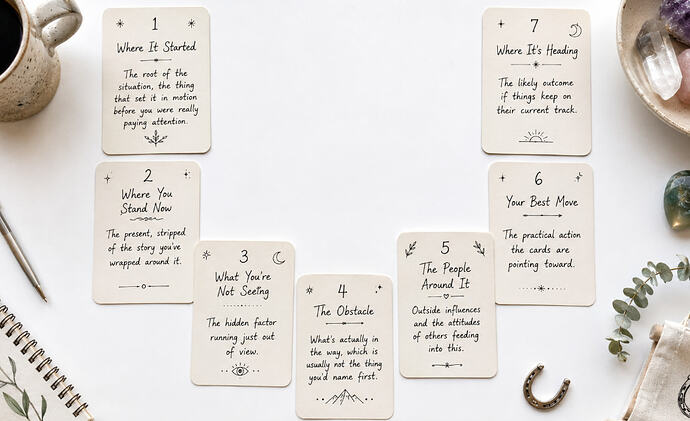 1
Where It Started
The root of the
situation, the thing
that set it in motion
before you were really
paying attention.
2
Where You
Stand Now
The present, stripped
of the story you've
wrapped around it.
3
What You're
Not Seeing
The hidden factor
running just out
of view.
4
The Obstacle
What's actually in
the way, which is
usually not the thing
you'd name first.
5
The People
Around It
Outside influences
and the attitudes
of others feeding
into this.
6
Your Best Move
The practical action
the cards are
pointing toward.
7
Where It's Heading
The likely outcome
if things keep on
their current track.